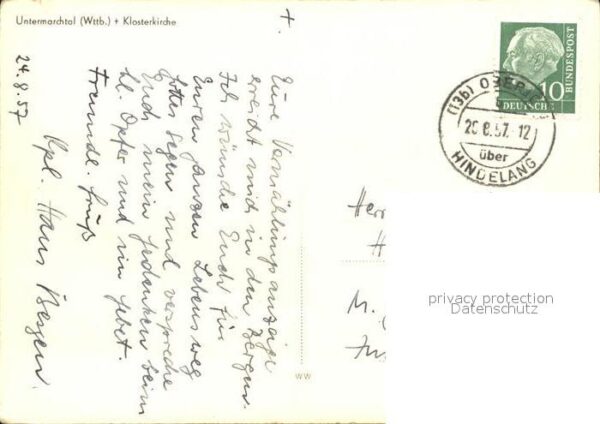 Untermarchtal (Wttb.) + Klosterkirche
+.
24.8.57
Eure Vermählungsanzeige
erreicht mich in den Bergen.
Ich wünsche Euch für
Euren ganzen Lebensweg
Gottes Segen und verspreche
Euch mein Gedenken beim
hl. Opfer und im Gebet.
Freundl. Gruß
Kpl. Hans
DEUTSCHE
BUNDESPOST
10
(13b)
26.8.57.-12
über
HINDELANG
Herr
H
M.
WW
privacy protection
Datenschutz